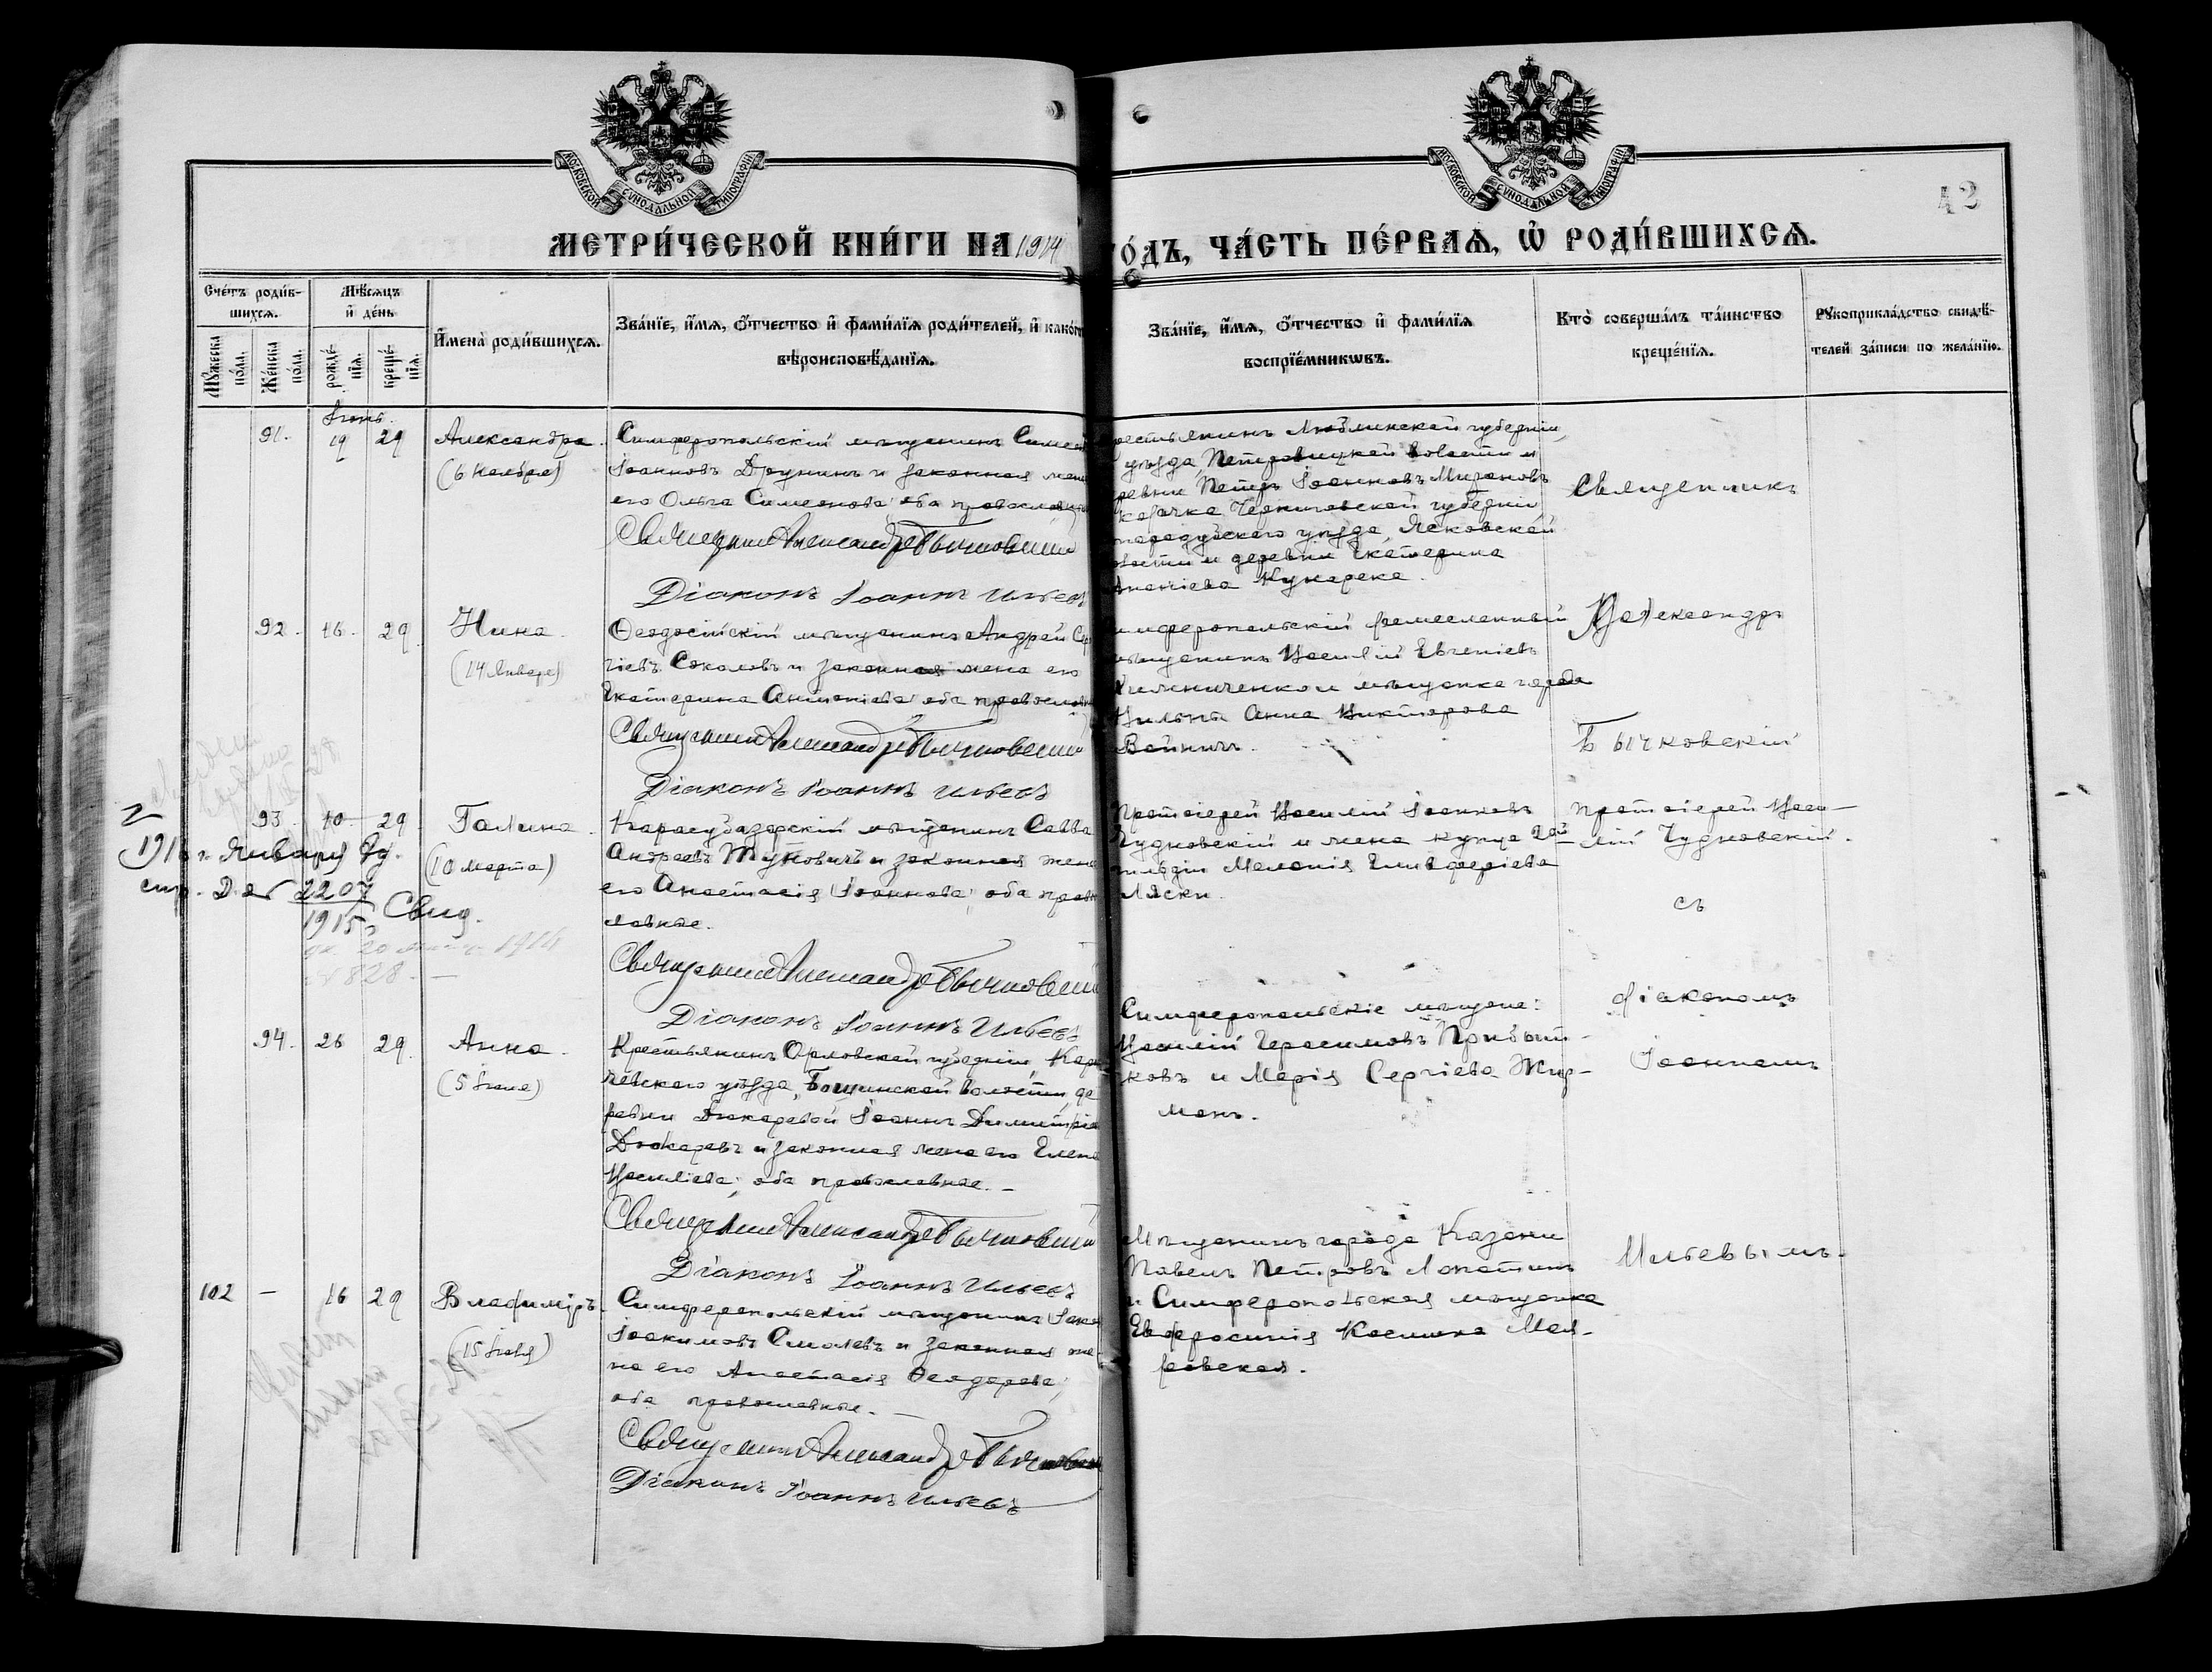 МОСКОВСКОЙ СѴНОДАЛЬНОЙ ТИПОГРАФІИ
МОСКОВСКОЙ СѴНОДАЛЬНОЙ ТИПОГРАФІИ
МЕТРИ́ЧЕСКОЙ КНИ́ГИ НА 1914
ГО́ДЪ, ЧА́СТЬ ПЕ́РВАѦ, Ѡ҆ РОДИ́ВШИХСѦ.
Сче́тъ роди́в-
шихсѧ.
Мꙋ́жеска по́ла.
Же́нска по́ла.
Мѣ́сѧцъ
и҆ де́нь
рожде́-нїѧ.
креще́-нїѧ.
И҆мена̀ роди́вшихсѧ.
Зва́нїе, и҆́мѧ, ѻ҆́тчество и҆ фами́лїѧ роди́телей, и҆ како́гѡ
вѣроисповѣ́данїѧ.
Зва́нїе, и҆́мѧ, ѻ҆́тчество и҆ фами́лїѧ
воспрїе́мникѡвъ.
Кто̀ соверша́лъ та́инство
креще́нїѧ.
Рꙋкоприкла́дство свидѣ́-
телей за́писи по жела́нїю.
Іюнь.
91. 19 29 Александра.
(6 Ноября)
Симферопольскій мѣщанинъ Симео
Іоанновъ Друнинъ и законная жена
его Ольга Симеонова; оба православные
Священникъ Александръ Бычковскій
Діаконъ Іоаннъ Ильевъ
рестьянинъ Люблинской губерніи,
уѣзда, Петровицкой волости и
ревни Петръ Іоанновъ Мироновъ
козачка Черниговской губерніи
городскаго уѣзда, Ясковской
волости и деревни Екатерина
Ананіева Кумарека.
Священникъ
92. 16. 29. Нина.
(14 Января)
Ѳеодосійскій мѣщанинъ Андрей Сер
гіевъ Соколовъ и законная жена его
Екатерина Антоніева; оба православные
Священникъ Александръ Бычковскій
Діаконъ Іоаннъ Ильевъ
имферопольскій ремесленный
мѣщанинъ Василій Евгеніевъ
Хильниченко и мѣщанка города
Вильны Анна Викторова
Войничъ.
Александръ
Бычковскій
93. 10. 29. Галина.
(10 Марта)
Карасубазарскій мѣщанинъ Савва
Андреевъ Тутковичъ и законная жена
его Анастасія Іоаннова; оба право
лавные.
Священникъ Александръ Бычковскій
Діаконъ Іоаннъ Ильевъ
Протоіерей Василій Іоанновъ
Чудновскій и жена купца 2ой
гильдіи Меланія Елевферіева
Ляски.
Протоіерей Васи-
лій Чудновскій.
съ
1915 г. Января
2207
1915. Свид.
№ 828
94. 26 29. Анна.
(5 Іюня)
Крестьянинъ Орловской губерніи, Кара
чевскаго уѣзда, Бошинской волости, де
ревни Дюкаревой Іоаннъ Димитріе
Дюкаревъ и законная жена его Елена
Василіева; оба православные.
Священникъ Александръ Бычковскій
Діаконъ Іоаннъ Ильевъ
Симферопольскіе мѣщане:
Василій Герасимовъ Прибыт-
ковъ и Марія Сергіева Жир-
манъ.
діакономъ
Іоанномъ
102 - 16 29 Владиміръ.
(15 Іюля)
Симферопольскій мѣщанинъ Іако
Іоакимовъ Смолевъ и законная же-
на его Анастасія Ѳеодорова;
оба православные.
Священникъ Александръ Бычковск
Діаконъ Іоаннъ Ильевъ
Мѣщанинъ города Казани
Павелъ Петровъ Лопатинъ
и Симферопольская мѣщанка
Евфросинія Космина Мая-
ровская.
Ильевымъ.